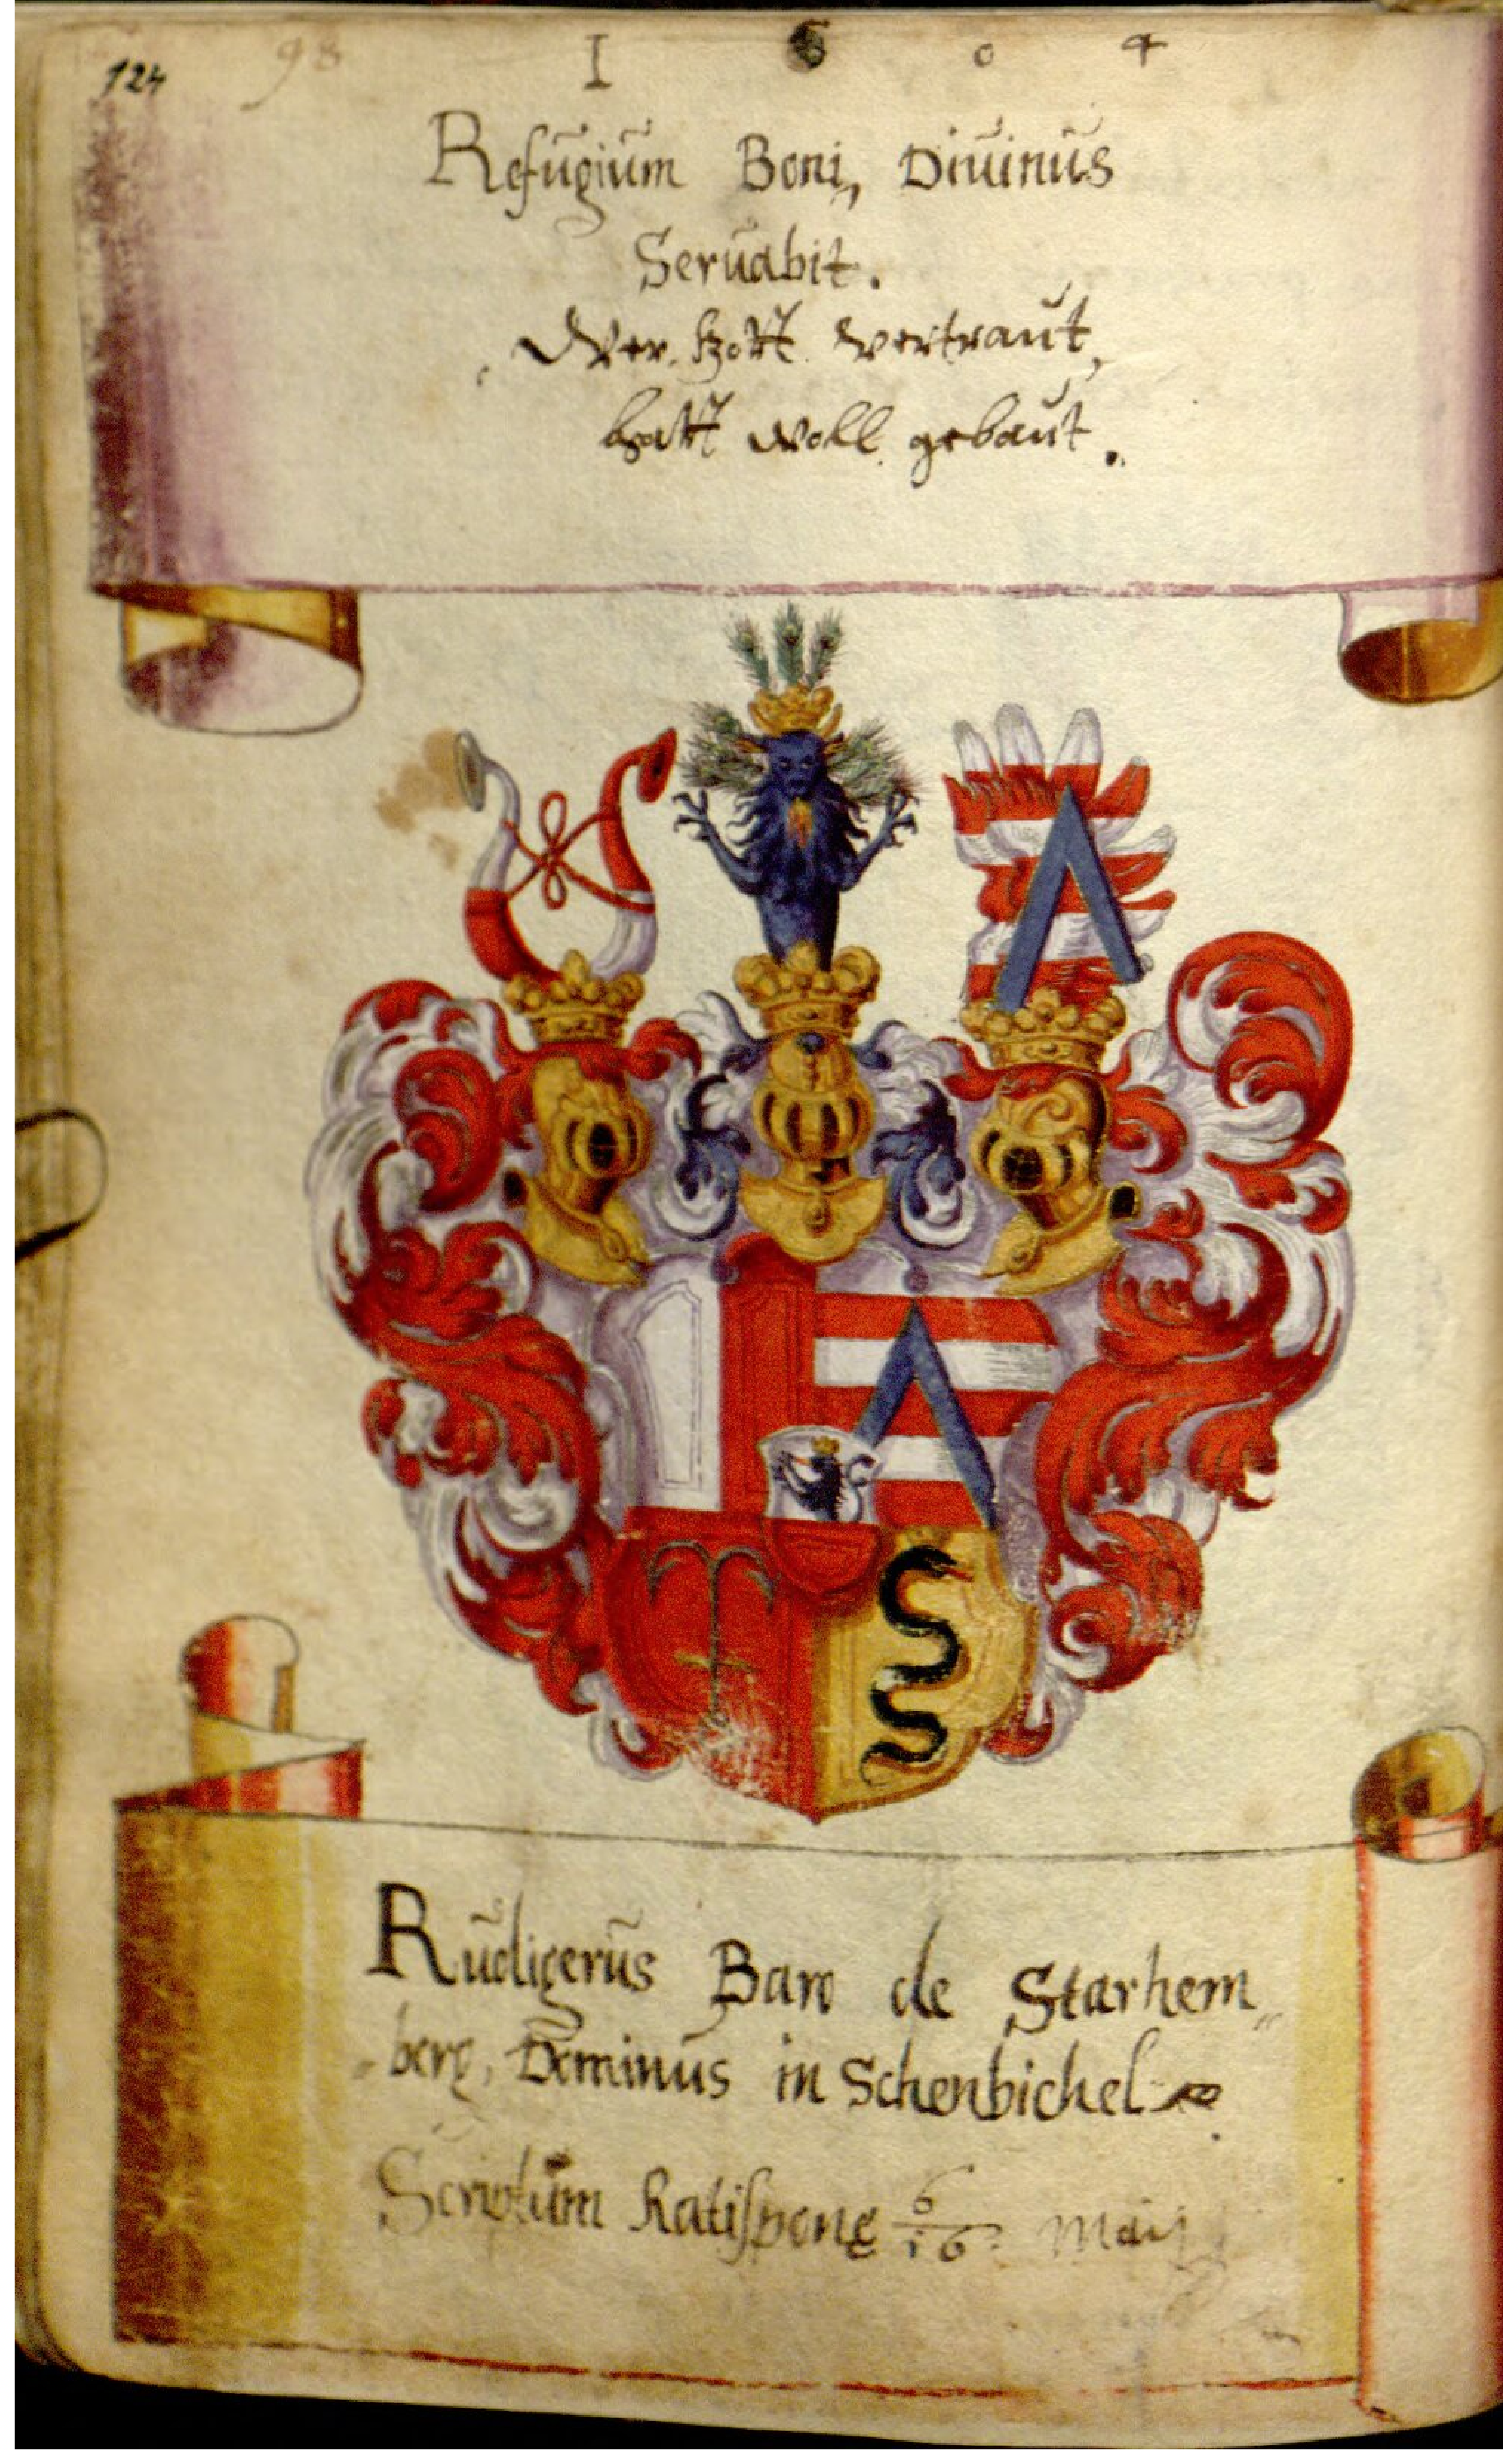 124 98
1 6 0 4
Refugium Boni, Diuinus
Seruabit.
Wer Gott vertraut,
hatt woll gebaut.
Rudigerus Baro de Starhem„
„berg, Dominus in Schenbichel
Scriptum Ratisponę 6/16 Maij